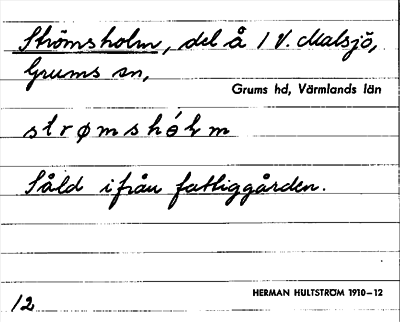 Strömsholm, del å 1 V. Malsjö,
Grums sn,
Grums hd, Värmlands län
strømshólm
Såld ifrån fattiggården.
HERMAN HULTSTRÖM 1910–12
12